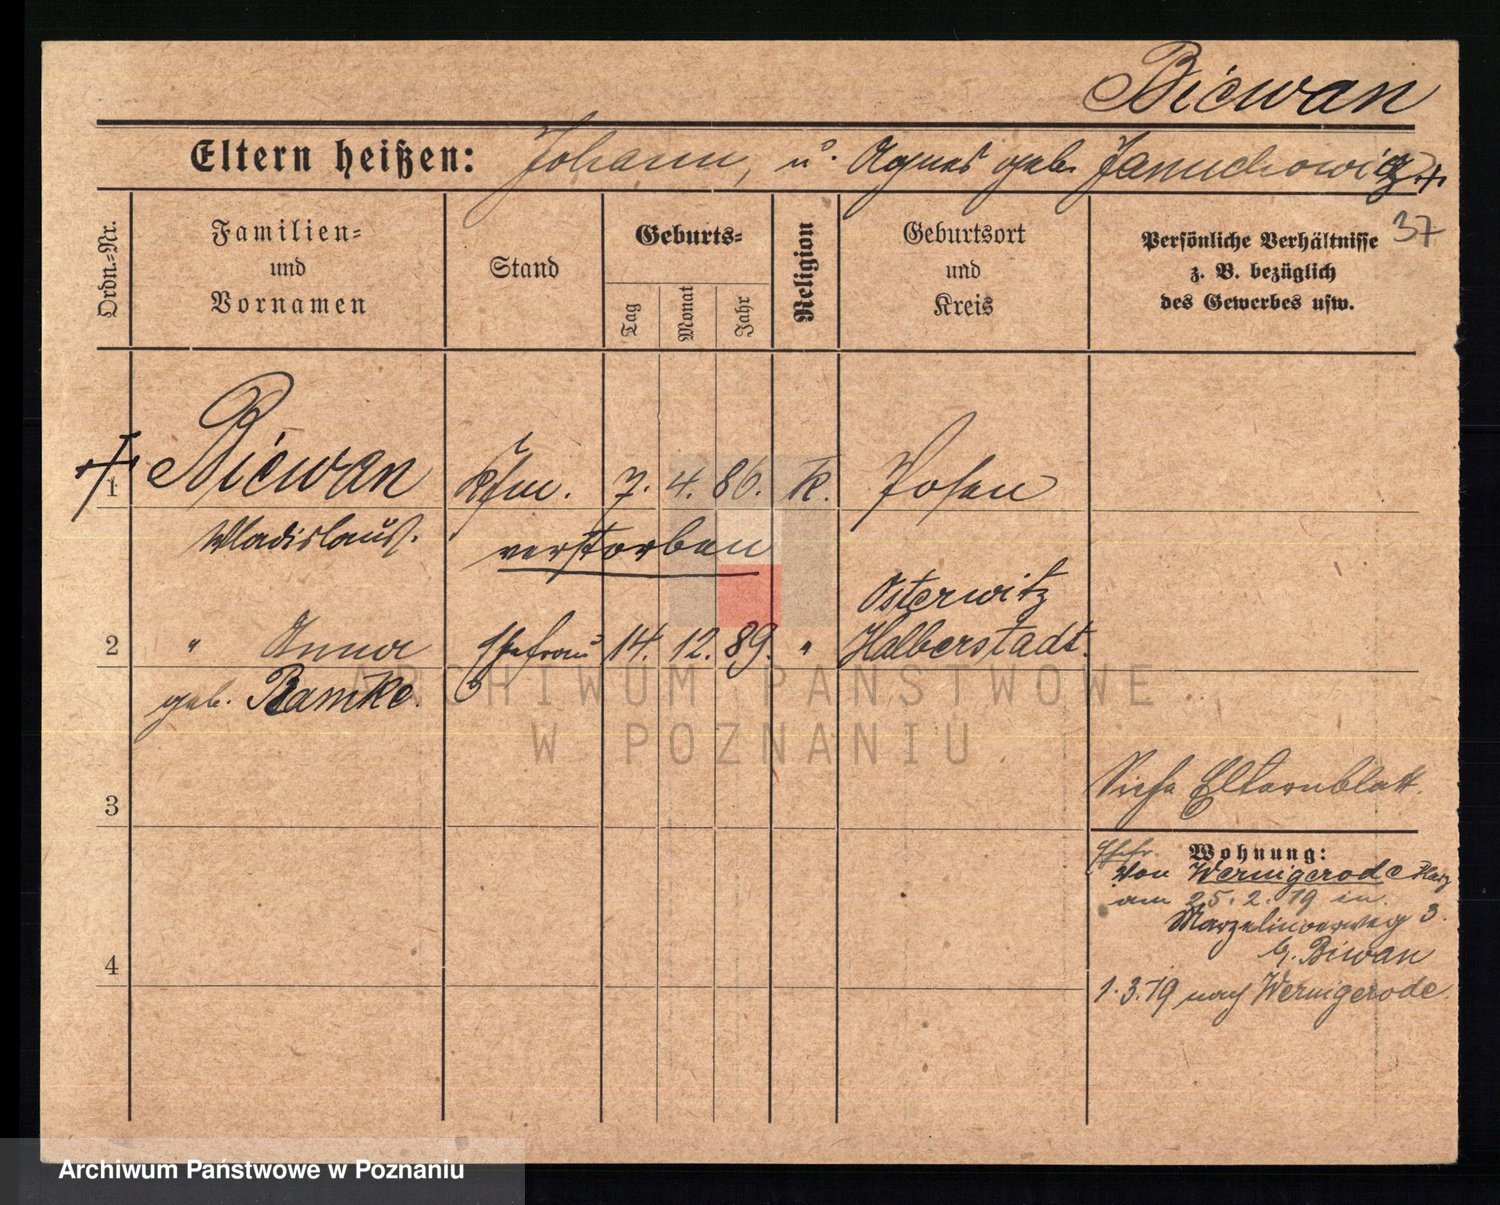 Biewan
Eltern heißen: Johann, u. Agnes geb. Januchowicz +
37
Ordn.-Nr.
Familien-
und
Vornamen
Stand
Geburts-
Tag
Monat
Jahr
Religion
Geburtsort
und
Kreis
Persönliche Verhältnisse
z. B. bezüglich
des Gewerbes usw.
+ 1 Biewan Kfm. 7. 4. 86. K. Posen
Wladislaus. verstorben
Osterwitz
2 " Anna Ehefrau 14. 12. 89. " Halberstadt.
geb. Ramke.
Siehe Elternblatt.
3
Ehefr. Wohnung:
von Wernigerode Harz
am 25.2.19 in
Marzelinoerweg 3.
b. Biewan
4
1.3.19 nach Wernigerode.
ARCHIWUM PAŃSTWOWE
W POZNANIU
Archiwum Państwowe w Poznaniu